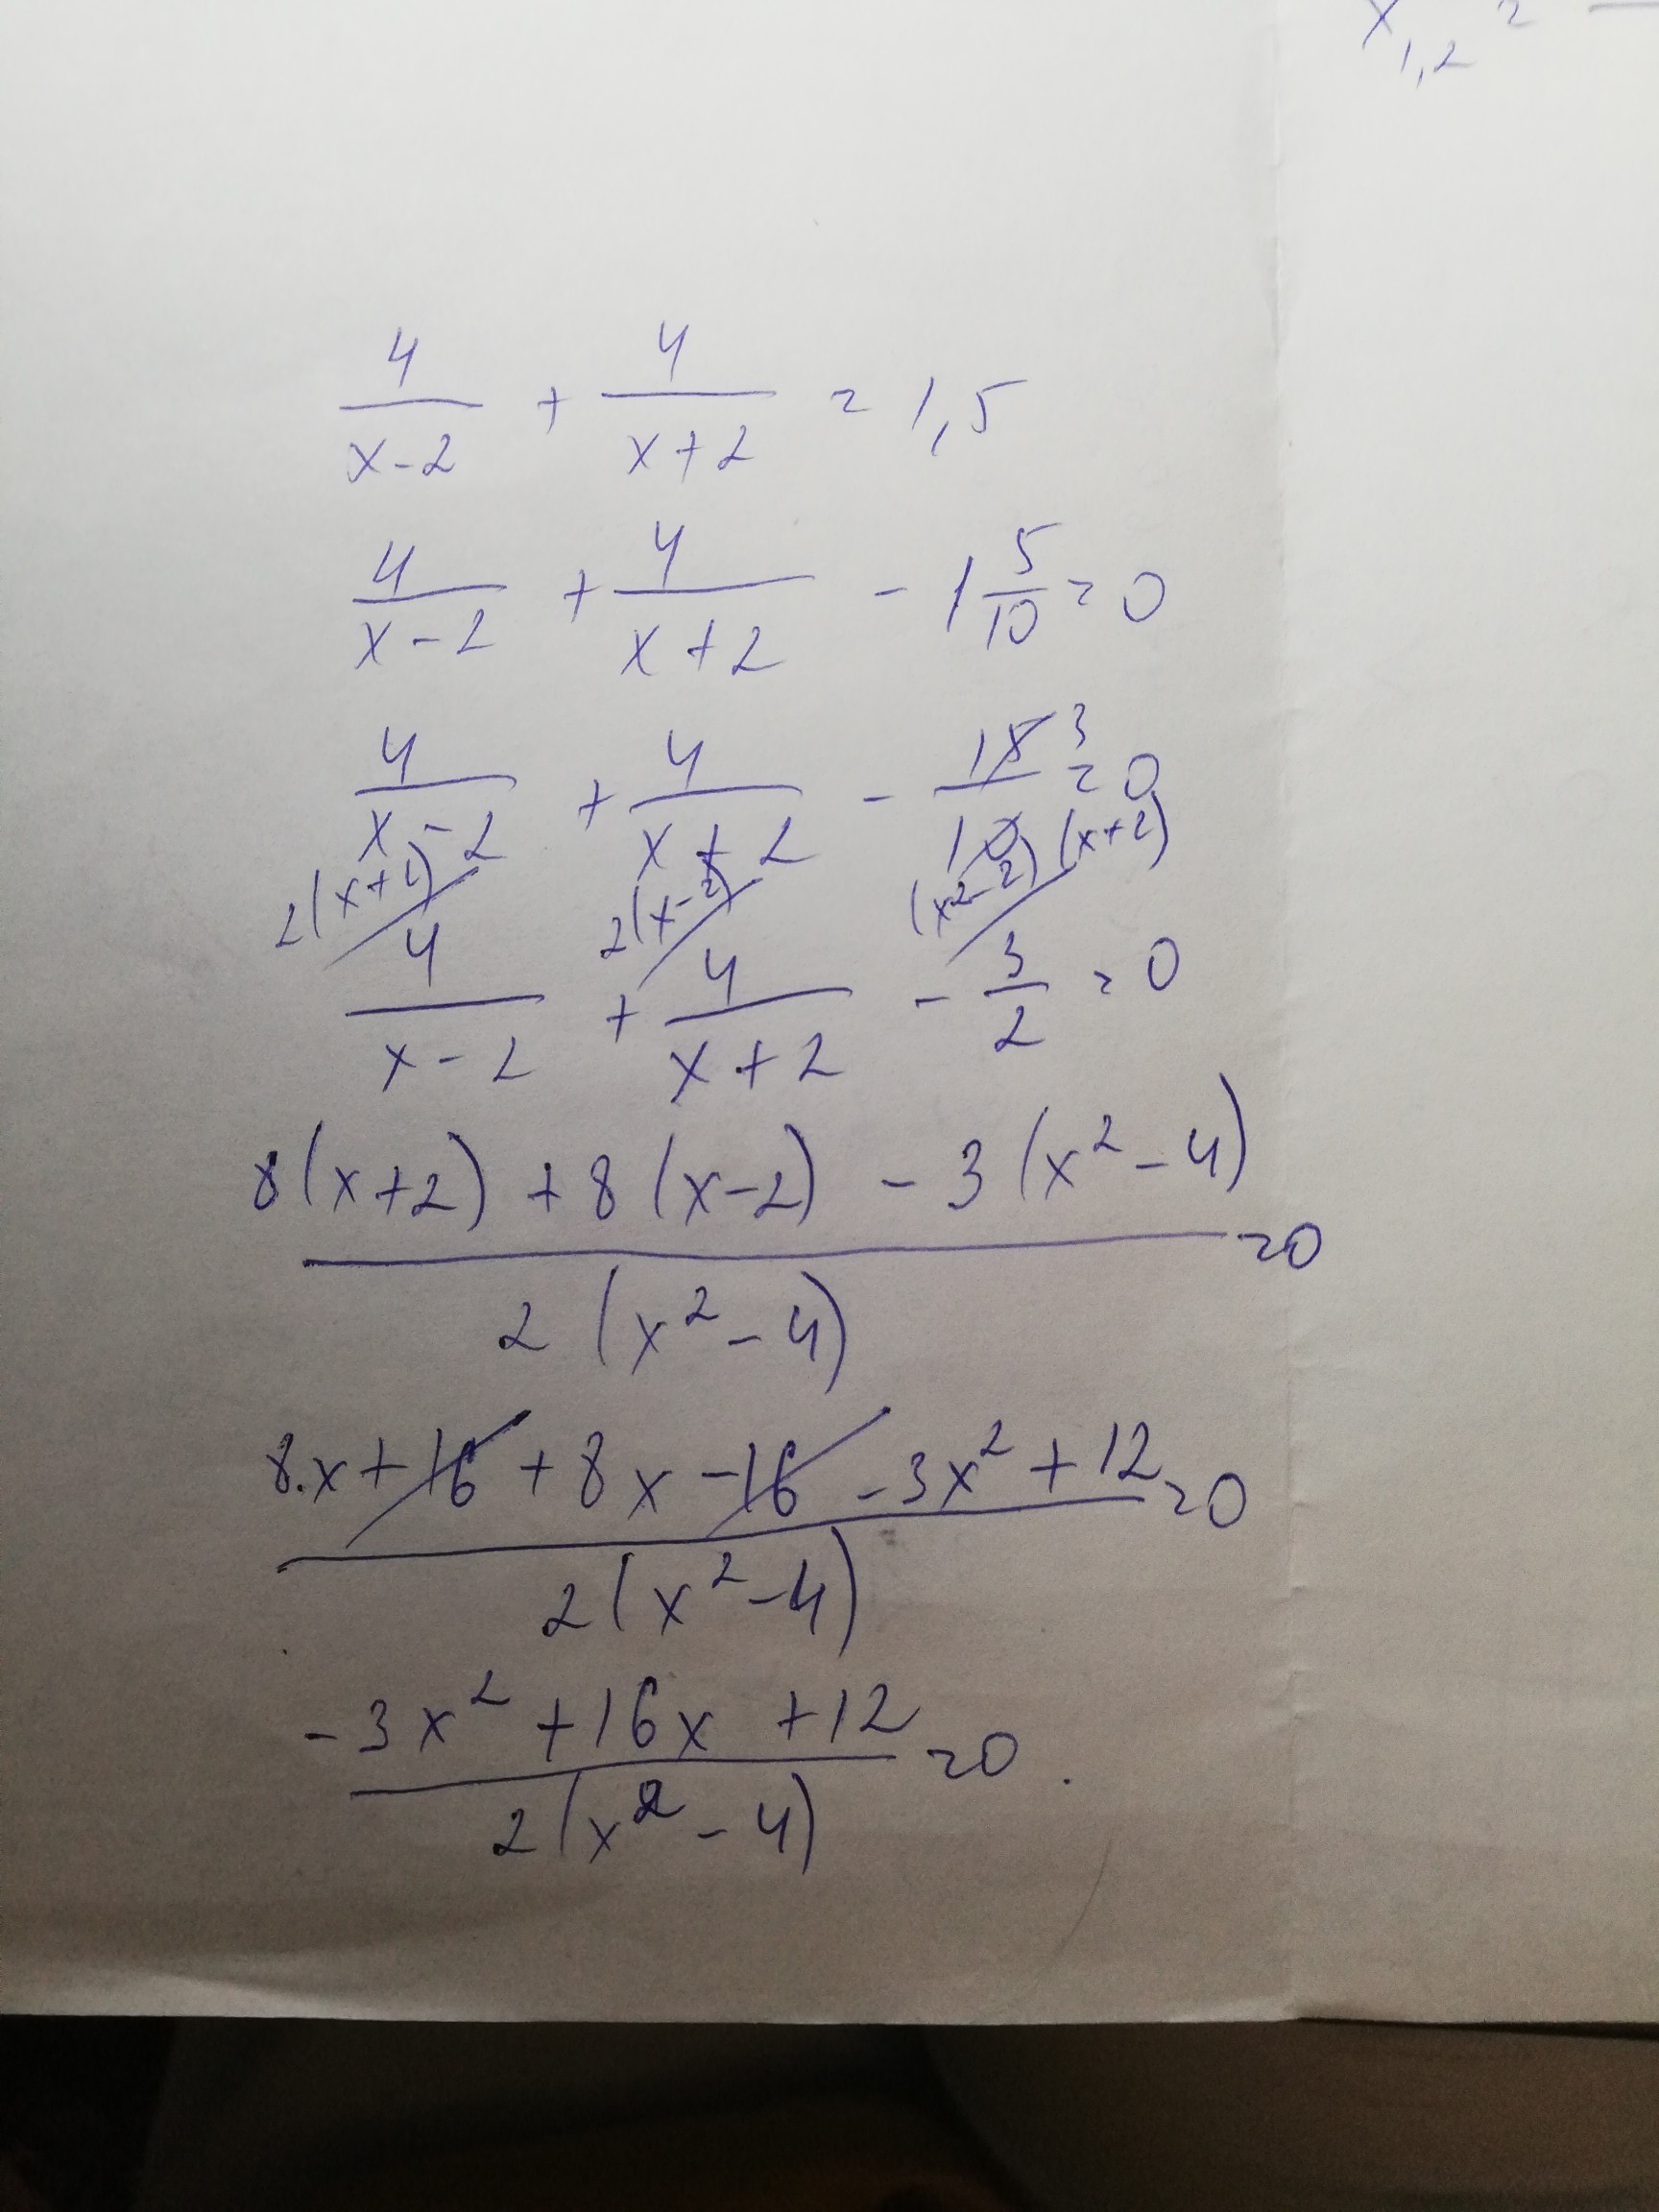 x₁,₂ =
4/(x-2) + 4/(x+2) = 1,5
4/(x-2) + 4/(x+2) - 1 5/10 = 0
4/(x-2) + 4/(x+2) - 15/10 3 = 0
2(x+2) 2(x-2) (x-2)(x+2)
4/(x-2) + 4/(x+2) - 3/2 = 0
8(x+2) + 8(x-2) - 3(x²-4)
= 0
2(x²-4)
8x + 16 + 8x - 16 - 3x² + 12 = 0
2(x²-4)
-3x² + 16x + 12 = 0.
2(x²-4)